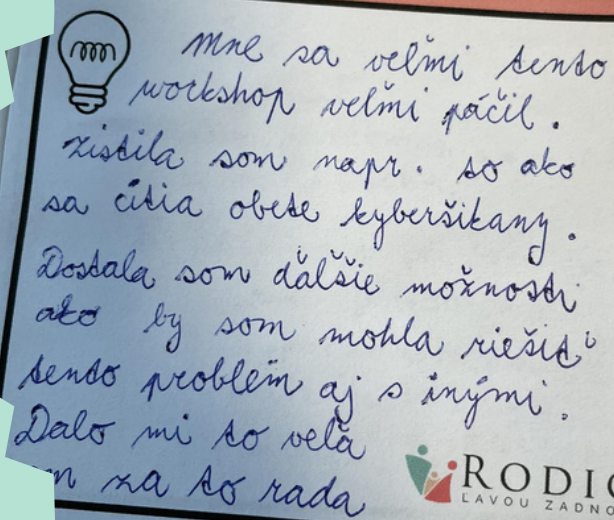 Mne sa veľmi tento
workshop veľmi páčil.
Zistila som napr. to ako
sa cítia obete kyberšikany.
Dostala som ďalšie možnosti
ako by som mohla riešiť
tento problém aj s inými.
Dalo mi to veľa
za to rada
RODI
ĽAVOU ZADNO